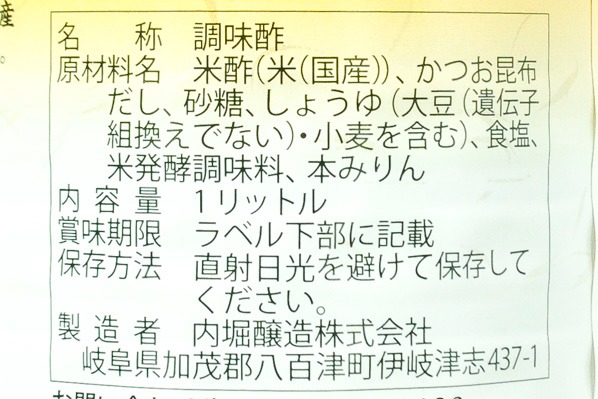 産
。
名称 調味酢
原材料名 米酢(米(国産))、かつお昆布
だし、砂糖、しょうゆ(大豆(遺伝子
組換えでない)・小麦を含む)、食塩、
米発酵調味料、本みりん
内容量 1リットル
賞味期限 ラベル下部に記載
保存方法 直射日光を避けて保存して
ください。
製造者 内堀醸造株式会社
岐阜県加茂郡八百津町伊岐津志437-1